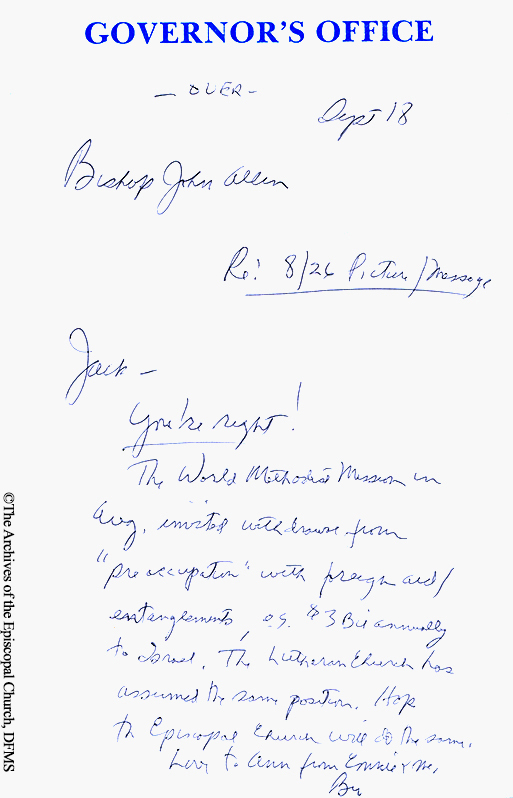 GOVERNOR'S OFFICE
— OVER —
Sept 18
Bishop John Allin
Re: 8/26 Picture/Message
Jack —
You're right!
The World Methodist Mission in
Aug. withdraw from
"preoccupation" with foreign aid/
entanglements, e.g. $3 Bil annually
to Israel. The Lutheran Church has
assumed the same position. Hope
the Episcopal Church will do the same.
Love to Ann from Connie & me,
©The Archives of the Episcopal Church, DFMS